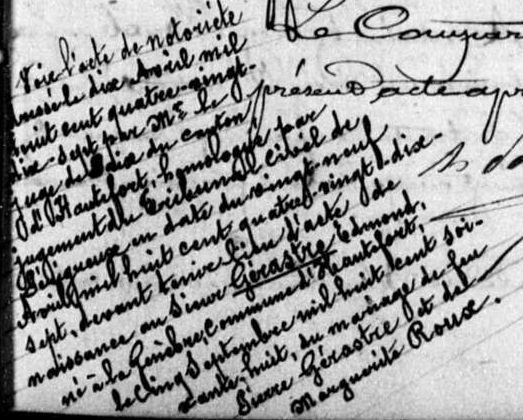 Voir l'acte de notoriété
dressé le dix Avril mil
huit cent quatre-vingt-
dix-sept par Mr le
juge de Paix du canton
d'Hautefort, homologué par
jugement du Tribunal Civil de
Périgueux en date du vingt-neuf
Avril mil huit cent quatre-vingt-dix-
sept, devant tenir lieu d'acte de
naissance au Sieur Gérastre Edmond,
né à la Genèbre, Commune d'Hautefort,
le cinq Septembre mil huit cent soi-
xante-huit, du mariage de feu
Pierre Gérastre et de
Marguerite Roux.
Le Compar
présent acte apr